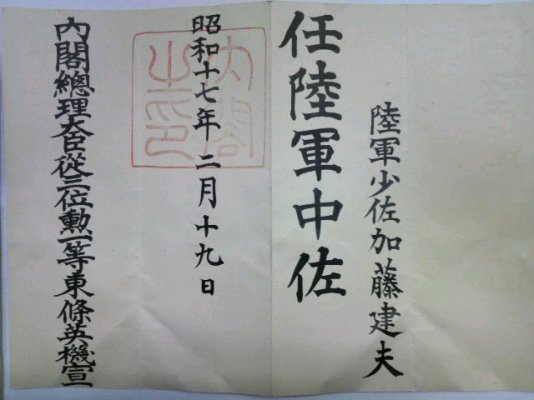 陸軍少佐加藤建夫
任陸軍中佐
昭和十七年二月十九日
内閣之印
內閣總理大臣從三位勳一等東條英機宣